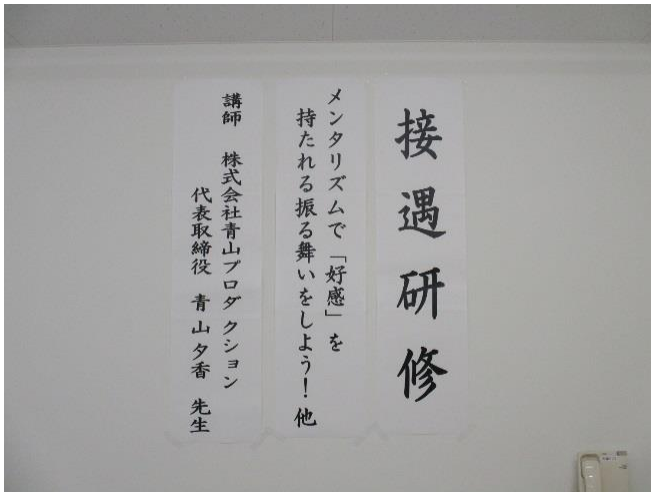 接遇研修
メンタリズムで「好感」を
持たれる振る舞いをしよう！他
講師　株式会社青山プロダクション
代表取締役　青山夕香　先生